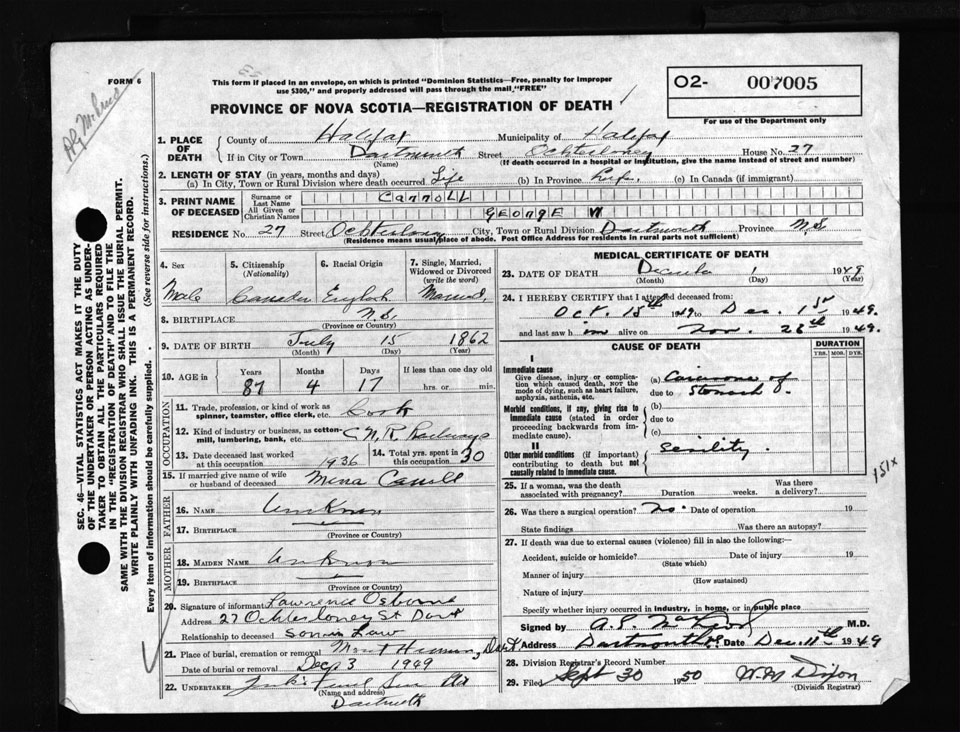 FORM 6
This form if placed in an envelope, on which is printed "Dominion Statistics—Free, penalty for improper
use $300," and properly addressed will pass through the mail "FREE"
PROVINCE OF NOVA SCOTIA—REGISTRATION OF DEATH
O2- 007005
For use of the Department only
1. PLACE OF DEATH County of Halifax Municipality of Halifax
If in City or Town Dartmouth Street Ochterloney House No. 27
(Name) (If death occurred in a hospital or institution, give the name instead of street and number)
2. LENGTH OF STAY (in years, months and days)
(a) In City, Town or Rural Division where death occurred Life (b) In Province Life. (c) In Canada (if immigrant)
3. PRINT NAME OF DECEASED Surname or Last Name CARROLL
All Given or Christian Names GEORGE W
RESIDENCE No. 27 Street Ochterloney City, Town or Rural Division Dartmouth Province N.S
(Residence means usual place of abode. Post Office Address for residents in rural parts not sufficient)
4. Sex 5. Citizenship (Nationality) 6. Racial Origin 7. Single, Married, Widowed or Divorced (write the word)
Male Canadian English Married
8. BIRTHPLACE N.S.
(Province or Country)
9. DATE OF BIRTH July 15 1862
(Month) (Day) (Year)
10. AGE in Years Months Days If less than one day old
87 4 17 hrs. or min.
OCCUPATION
11. Trade, profession, or kind of work as spinner, teamster, office clerk, etc. Cook
12. Kind of industry or business, as cotton-mill, lumbering, bank, etc. C N. R. Railways
13. Date deceased last worked at this occupation 1936 14. Total yrs. spent in this occupation 30
15. If married give name of wife or husband of deceased Mina Carroll
FATHER
16. Name Unknown
17. Birthplace
(Province or Country)
MOTHER
18. Maiden Name Unknown
19. Birthplace
(Province or Country)
20. Signature of informant Lawrence Osborne
Address 27 Ochterloney St Dart
Relationship to deceased Son in Law
21. Place of burial, cremation or removal Mount Hermon, Dart
Date of burial or removal Dec 3 1949
22. Undertaker
(Name and address)
Dartmouth
MEDICAL CERTIFICATE OF DEATH
23. DATE OF DEATH December 1 1949
(Month) (Day) (Year)
24. I HEREBY CERTIFY that I attended deceased from:
Oct. 15th 1949 to Dec. 1st 1949.
and last saw him alive on Nov. 28th 1949.
CAUSE OF DEATH DURATION
YRS. MOS. DYS.
I
Immediate cause
Give disease, injury or complication which caused death, NOT the mode of dying, such as heart failure, asphyxia, asthenia, etc.
(a) Carcinoma of
due to Stomach.
Morbid conditions, if any, giving rise to immediate cause (stated in order proceeding backwards from immediate cause).
(b)
due to
(c)
II
Other morbid conditions (if important) contributing to death but not causally related to immediate cause.
Senility.
151x
25. If a woman, was the death associated with pregnancy? Duration weeks. Was there a delivery?
26. Was there a surgical operation? No. Date of operation 19
State findings Was there an autopsy?
27. If death was due to external causes (violence) fill in also the following:—
Accident, suicide or homicide? Date of injury 19
(State which)
Manner of injury
(How sustained)
Nature of injury
Specify whether injury occurred in industry, in home, or in public place
Signed by M.D.
Address Dartmouth Date Dec. 11th 1949
28. Division Registrar's Record Number
29. Filed Sept 30 1950 W. M. Dixon
(Division Registrar)
SEC. 46—VITAL STATISTICS ACT MAKES IT THE DUTY
OF THE UNDERTAKER OR PERSON ACTING AS UNDER-
TAKER TO OBTAIN ALL THE PARTICULARS REQUIRED
IN THE "REGISTRATION OF DEATH" AND TO FILE THE
SAME WITH THE DIVISION REGISTRAR WHO SHALL ISSUE THE BURIAL PERMIT.
WRITE PLAINLY WITH UNFADING INK. THIS IS A PERMANENT RECORD.
Every item of information should be carefully supplied. (See reverse side for instructions.)